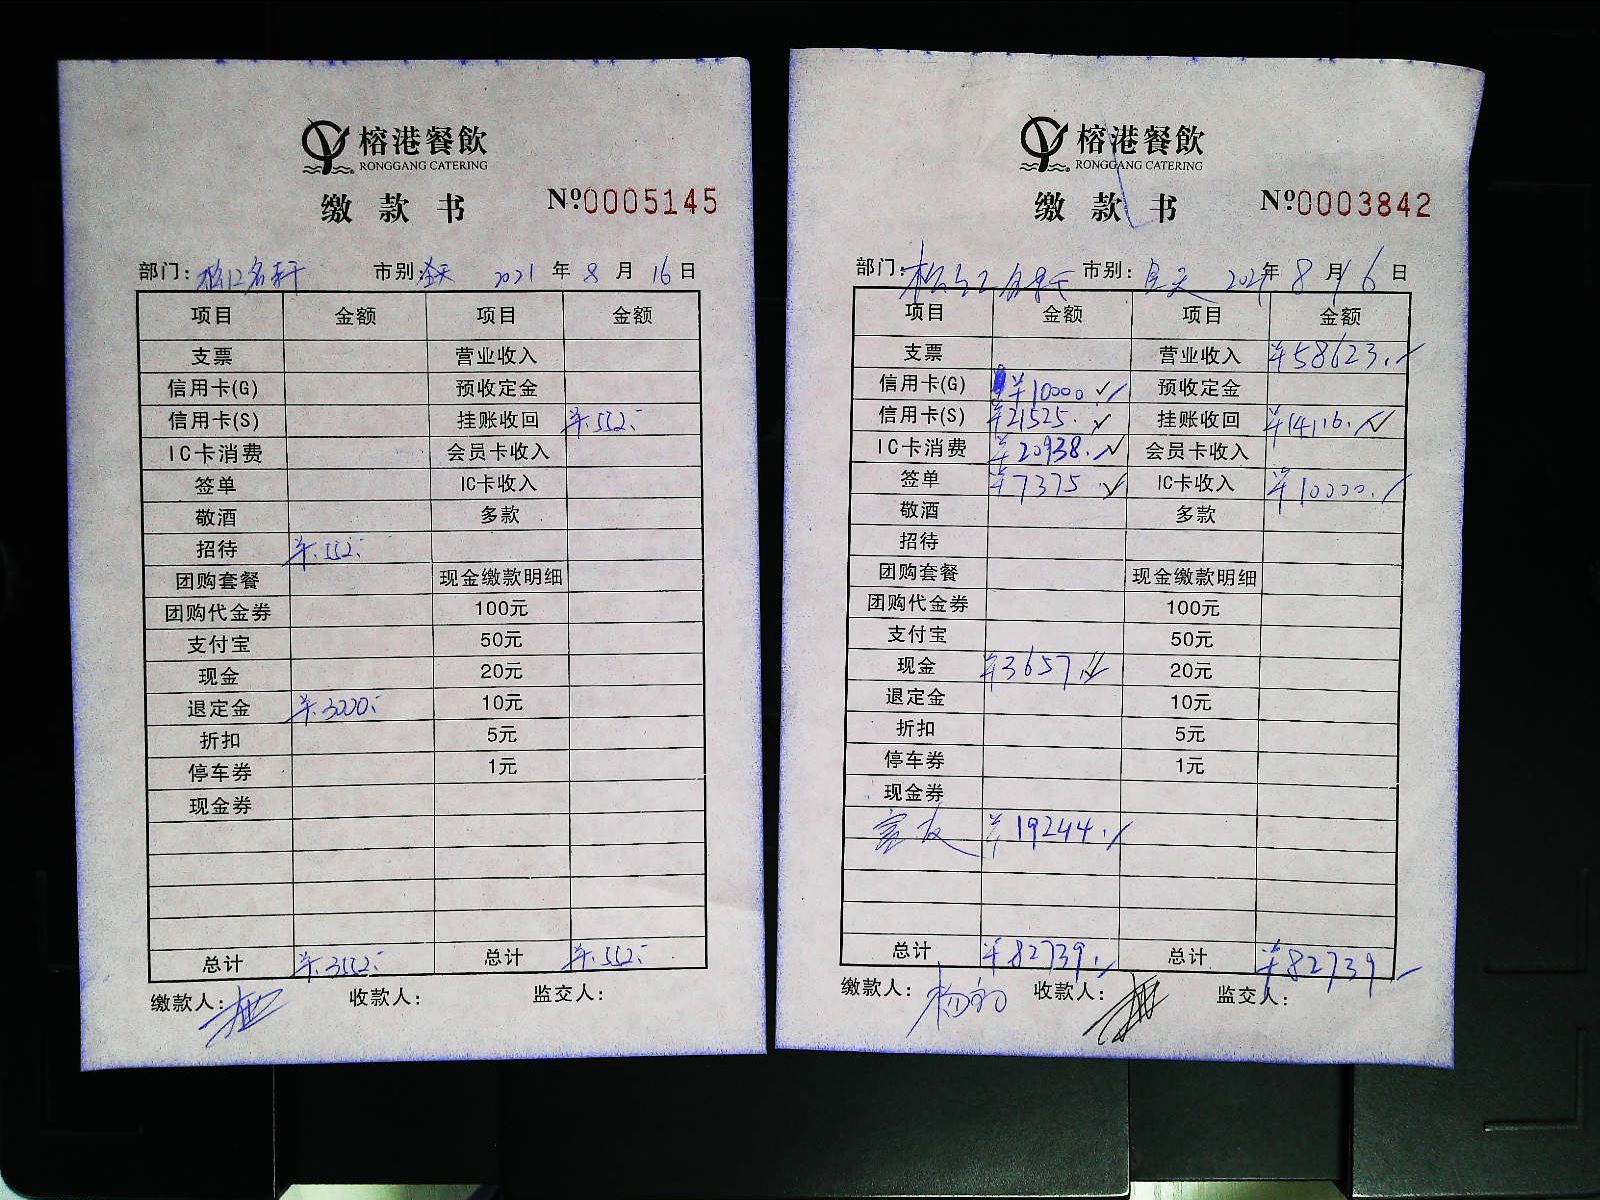 榕港餐飲
RONGGANG CATERING
缴款书 №0005145
部门: 松江名轩 市别: 全天 2021年8月16日
项目 金额 项目 金额
支票 营业收入
信用卡(G) 预收定金
信用卡(S) 挂账收回 ¥552.-
IC卡消费 会员卡收入
签单 IC卡收入
敬酒 多款
招待 ¥552.-
团购套餐 现金缴款明细
团购代金券 100元
支付宝 50元
现金 20元
退定金 ¥3000.- 10元
折扣 5元
停车券 1元
现金券
总计 ¥3552.- 总计 ¥552.-
缴款人: 收款人: 监交人:
榕港餐飲
RONGGANG CATERING
缴款书 №0003842
部门: 松江名轩 市别: 全天 2021年8月16日
项目 金额 项目 金额
支票 营业收入 ¥58623.-
信用卡(G) ¥10000.- 预收定金
信用卡(S) ¥21525.- 挂账收回 ¥14116.-
IC卡消费 ¥20938.- 会员卡收入
签单 ¥7375.- IC卡收入 ¥10000.-
敬酒 多款
招待
团购套餐 现金缴款明细
团购代金券 100元
支付宝 50元
现金 ¥3657.- 20元
退定金 10元
折扣 5元
停车券 1元
现金券
¥19244.-
总计 ¥82739.- 总计 ¥82739.-
缴款人: 收款人: 监交人: